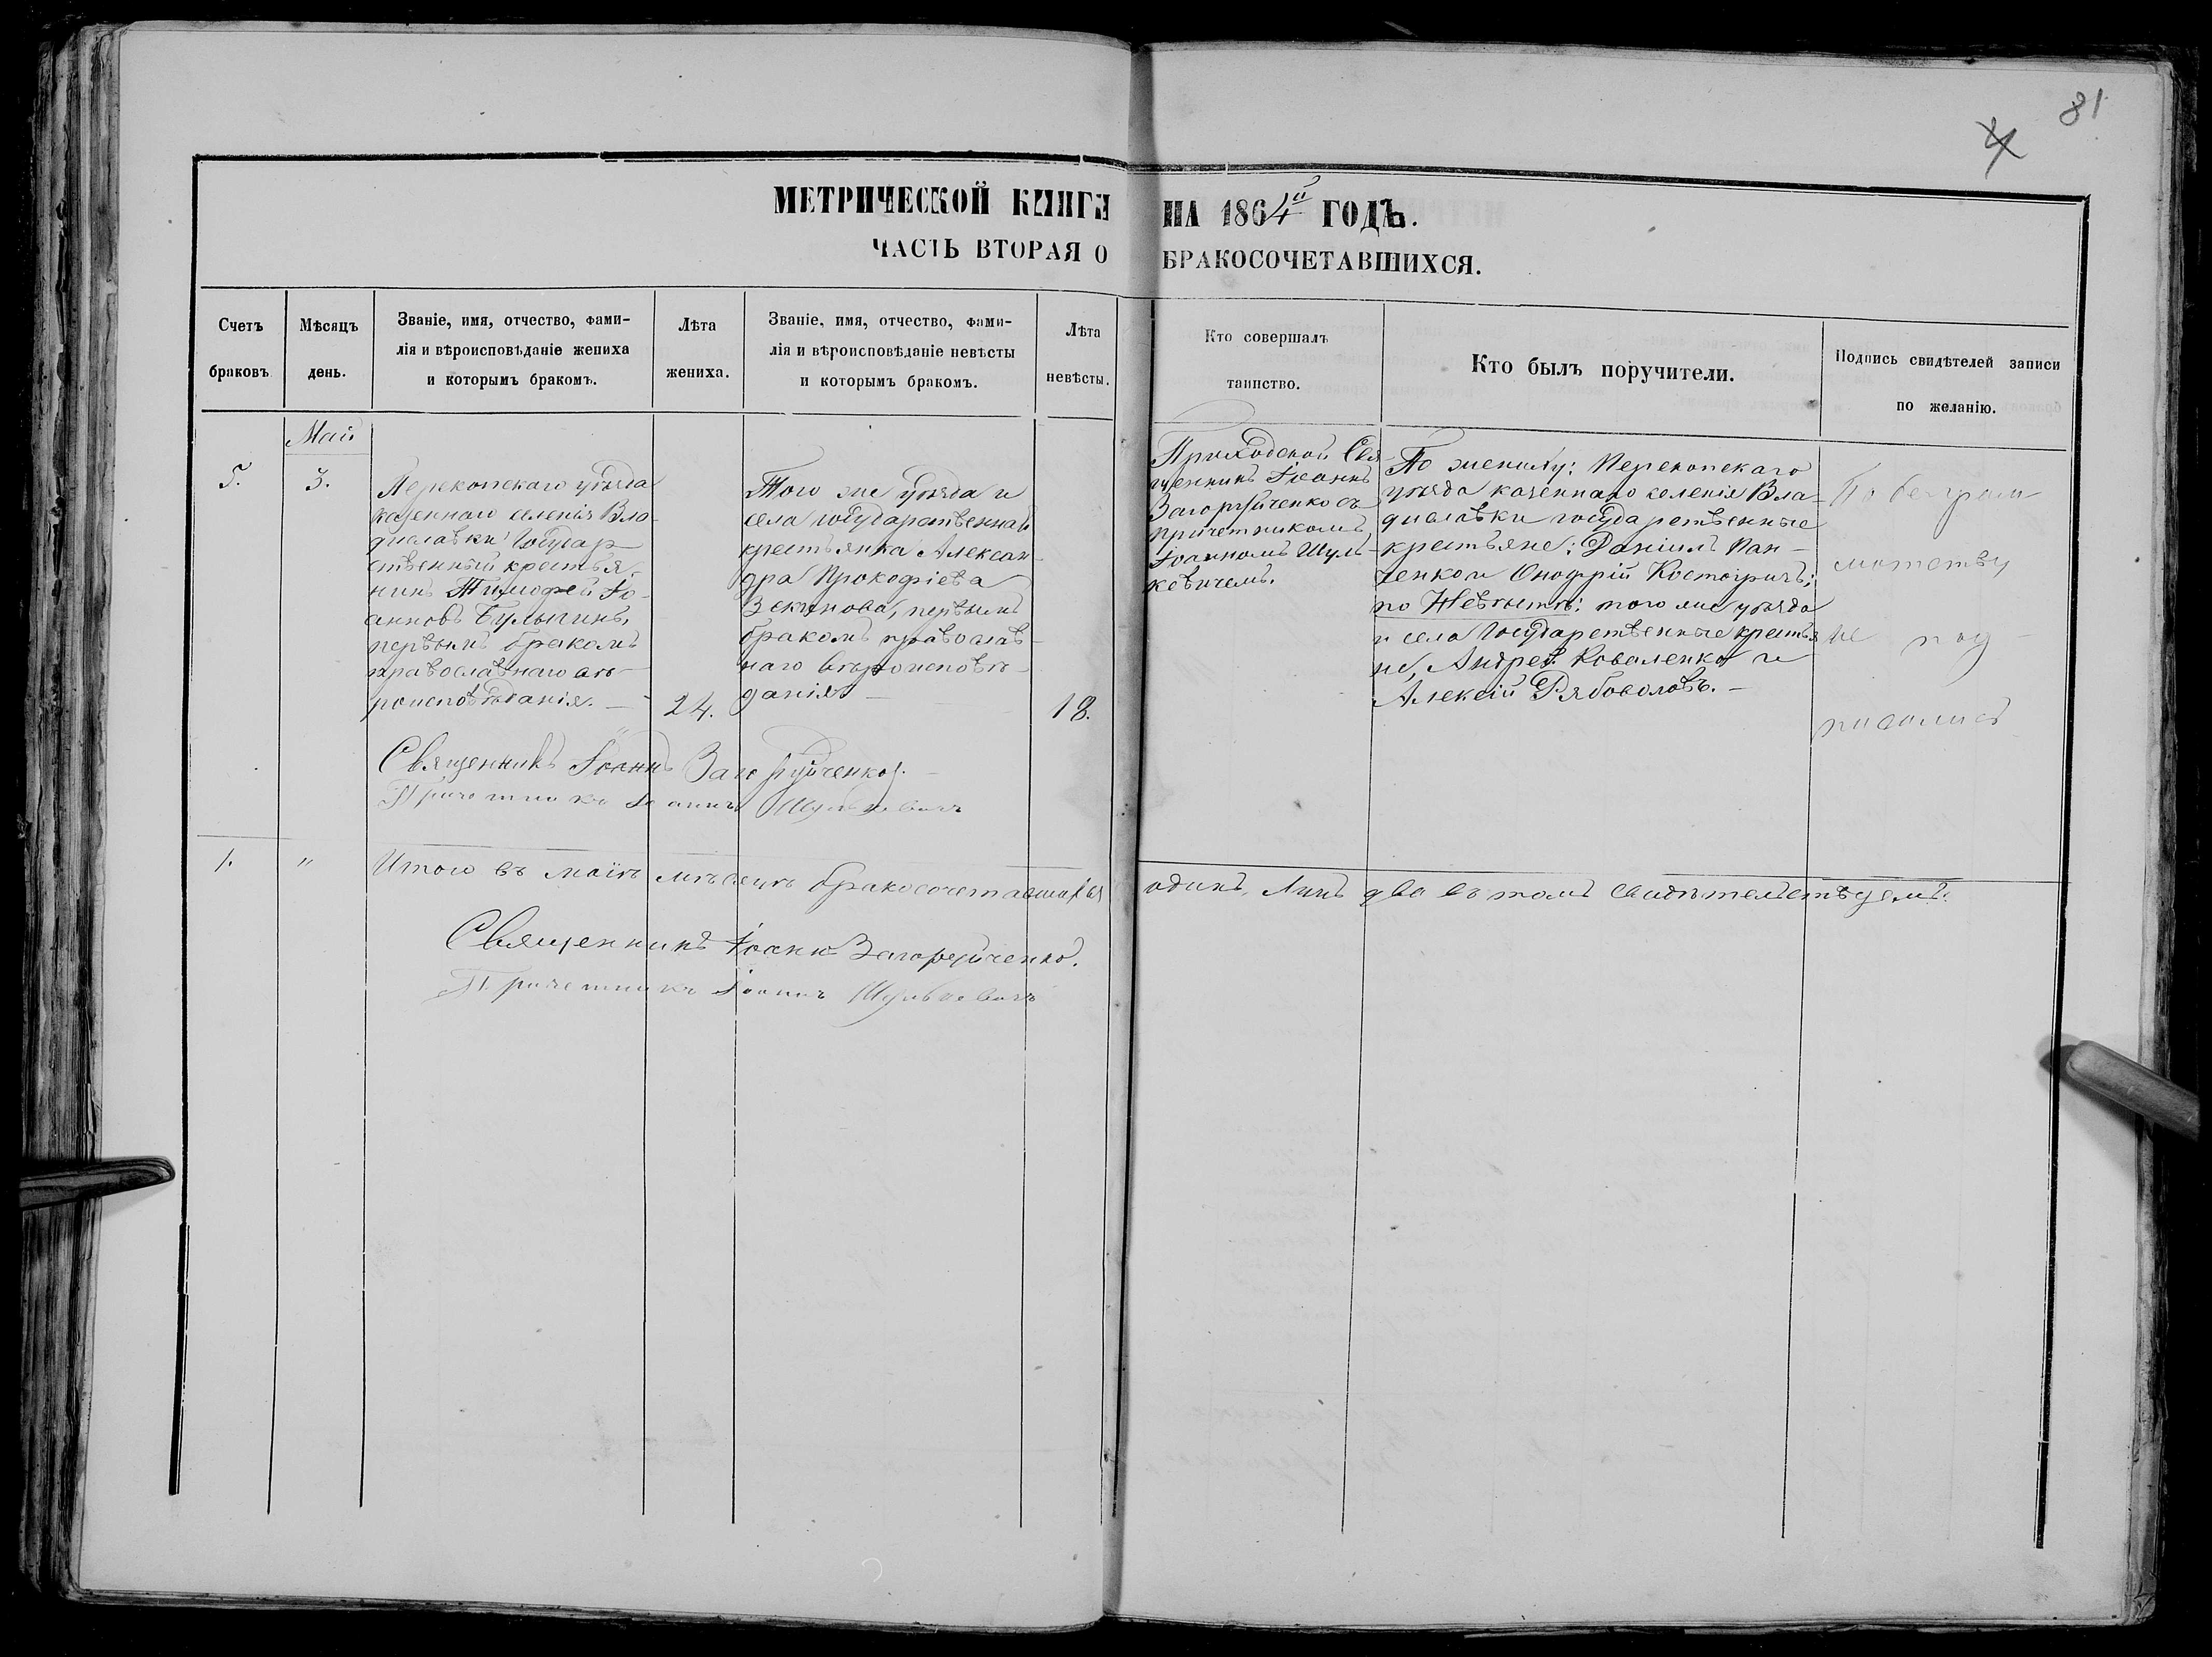 81
4
МЕТРИЧЕСКОЙ КНИГИ НА 1864й ГОДЪ.
ЧАСТЬ ВТОРАЯ О БРАКОСОЧЕТАВШИХСЯ.
Счетъ
браковъ
Мѣсяцъ
день.
Званіе, имя, отчество, фами-
лія и вѣроисповѣданіе жениха
и которымъ бракомъ.
Лѣта
жениха.
Званіе, имя, отчество, фами-
лія и вѣроисповѣданіе невѣсты
и которымъ бракомъ.
Лѣта
невѣсты.
Кто совершалъ
таинство.
Кто былъ поручители.
Подпись свидѣтелей записи
по желанію.
Май
5.
3.
Перекопскаго уѣзда
казеннаго селенія Вла-
диславки Государ
ственный крестья
нинъ Тимофей Іо-
анновъ Булыгинъ,
первымъ бракомъ
православнаго вѣ-
роисповѣданія. —
24.
Того же уѣзда и
села государственная
крестьянка Алексан-
дра Прокофіева
первымъ
бракомъ православ-
наго вѣроисповѣ-
данія —
18.
Приходской Свя-
щенникъ Іоаннъ
Загоруйченко съ
причетникомъ
Іоанномъ Шуль-
кевичемъ.
По жениху: Перекопскаго
уѣзда казеннаго селенія Вла-
диславки государственные
крестьяне: Даніилъ Пан-
ченко и Онофрій Костогризъ;
по Невѣстѣ: того же уѣзда
и села Государственные крестья
не, Андрей Коваленко и
Алексій Рябоволовъ. —
По безграм-
мотству
не под-
писались
Священникъ Іоаннъ Загоруйченко.
Причетникъ Іоаннъ Шулькевичъ
1.
"
Итого въ маѣ мѣсяцѣ бракосочетавшихся одинъ, лицъ два въ томъ свидѣтельствуемъ.
Священникъ Іоаннъ Загоруйченко.
Причетникъ Іоаннъ Шулькевичъ